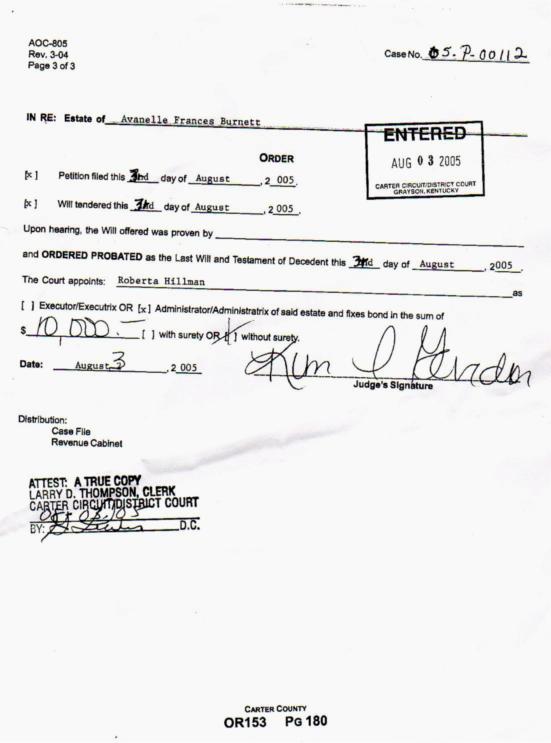 AOC-805
Rev. 3-04
Page 3 of 3
Case No. 05-P-00112
IN RE: Estate of Avanelle Frances Burnett
ENTERED
AUG 03 2005
CARTER CIRCUIT/DISTRICT COURT
GRAYSON, KENTUCKY
ORDER
[x] Petition filed this 3rd day of August, 2 005.
[x] Will tendered this 3rd day of August, 2 005.
Upon hearing, the Will offered was proven by
and ORDERED PROBATED as the Last Will and Testament of Decedent this 3rd day of August, 2005.
The Court appoints: Roberta Hillman as
[ ] Executor/Executrix OR [x] Administrator/Administratrix of said estate and fixes bond in the sum of
$ 10,000.— [ ] with surety OR [/] without surety.
Date: August 3, 2 005
Judge's Signature
Distribution:
Case File
Revenue Cabinet
ATTEST: A TRUE COPY
LARRY D. THOMPSON, CLERK
CARTER CIRCUIT/DISTRICT COURT
BY: D.C.
CARTER COUNTY
OR153 PG 180